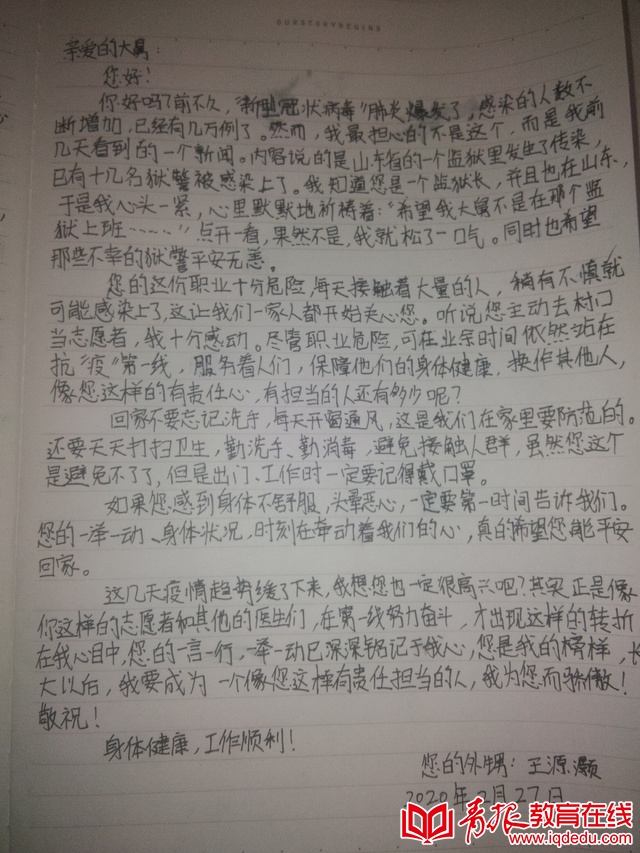 OURSTORYBEGINS
亲爱的大舅：
您好！
你好吗？前不久，“新型冠状病毒”肺炎爆发了，感染的人数不
断增加，已经有几万例了。然而，我最担心的不是这个，而是我前
几天看到的一个新闻。内容说的是山东省的一个监狱里发生了传染，
已有十几名狱警被感染上了。我知道您是一个监狱长，并且也在山东，
于是我心头一紧，心里默默地祈祷着：“希望我大舅不是在那个监
狱上班……”点开一看，果然不是，我就松了一口气。同时也希望
那些不幸的狱警平安无恙。
您的这份职业十分危险，每天接触着大量的人，稍有不慎就
可能感染上了，这让我们一家人都开始关心您。听说您主动去村门
当志愿者，我十分感动。尽管职业危险，可在业余时间依然站在
抗“疫”第一线，服务着人们，保障他们的身体健康，换作其他人，
像您这样的有责任心，有担当的人还有多少呢？
回家不要忘记洗手，每天开窗通风，这是我们在家里要防范的。
还要天天打扫卫生，勤洗手、勤消毒，避免接触人群，虽然您这个
是避免不了了，但是出门、工作时一定要记得戴口罩。
如果您感到身体不舒服，头晕恶心，一定要第一时间告诉我们。
您的一举一动、身体状况，时刻在牵动着我们的心，真的希望您能平安
回家。
这几天疫情趋势缓了下来，我想您也一定很高兴吧？其实正是像
你这样的志愿者和其他的医生们，在第一线努力奋斗，才出现这样的转折
在我心目中，您的一言一行，一举一动已深深铭记于我心，您是我的榜样，长
大以后，我要成为一个像您这样有责任担当的人，我为您而骄傲！
敬祝！
身体健康，工作顺利！
您的外甥：王源灏
2020年2月27日
青报教育在线
www.iqdedu.com